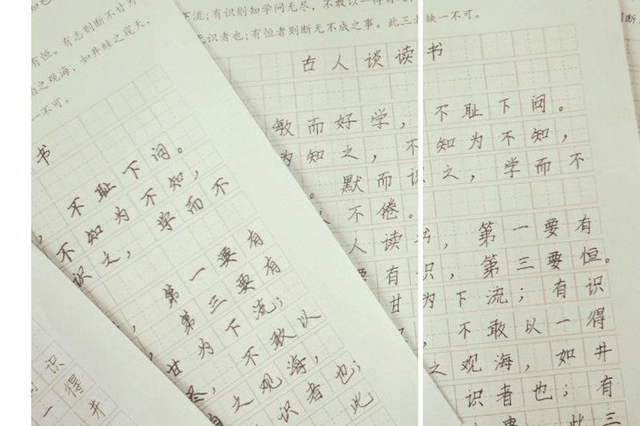 有恒。有志则断不甘为
之观海,如井蛙之窥天,
一不可。
下流;有识则知学问无尽,不敢以一得自
识者也;有恒者则断无不成之事。此三者缺一不可。
古人谈读书
敏而好学,不耻下问。
为知之,不知为不知,
。默而识之,学而不
人不倦。
人读书,第一要有
要有识,第三要恒。
甘为下流;有识
,不敢以一得
之观海,如井
识者也;有
此三
书
不耻下问。
不知为不知,
识之,学而不
,第一要有
,第三要有
甘为下流;
,不敢以
之观海,
识者也;
此
识
一得
井